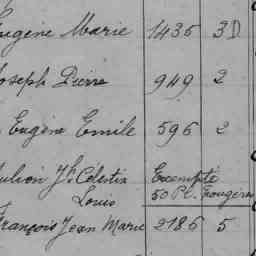 Eugène Marie 1435 3D
Joseph Pierre 949 2
Eugène Emile 596 2
Julien Jh Célestin Exempté
Louis 50 Pl. Fougères
François Jean Marie 2186 5